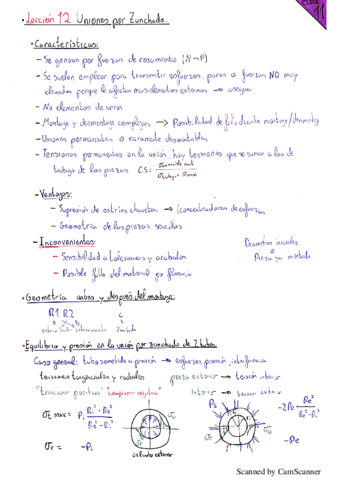 Lección 12 Uniones por Zunchado.
• Características:
- Se generan por fuerzas de rozamiento (N→P)
- Se suelen emplear para transmitir esfuerzos, pares o fuerzas NO muy
elevados porque le afectan mucho elementos externos →
- No elementos de unión
- Montaje y desmontaje complejos → Posibilidad de fallo durante montaje/desmontaje
- Uniones permanentes o raramente desmontables
- Tensiones permanentes en la unión, hay tensiones que se suman a las de
trabajo de las piezas CS=
- Ventajas:
- Supresión de estrías, chavetas → (concentradores de esfuerzo)
- Geometría de las piezas sencillas
- Inconvenientes:
- Sensibilidad a tolerancias y acabados
- Posible fallo del material por fluencia
Diametros iniciales
≠
Pieza ya montada
• Geometría antes y después del montaje:
R1 R2
Zunchado
• Equilibrio y presión en la unión por zunchado de 2 tubos:
Caso general: tubo sometido a presión → esfuerzos, presión, interferencia
tensiones tangenciales y radiales
"tracción positiva" "compresión negativa"
pieza exterior → tensión interior
interior → tensión exterior
σt max = Pi
σr = -Pi
cilindro exterior
-Pe
Scanned by CamScanner